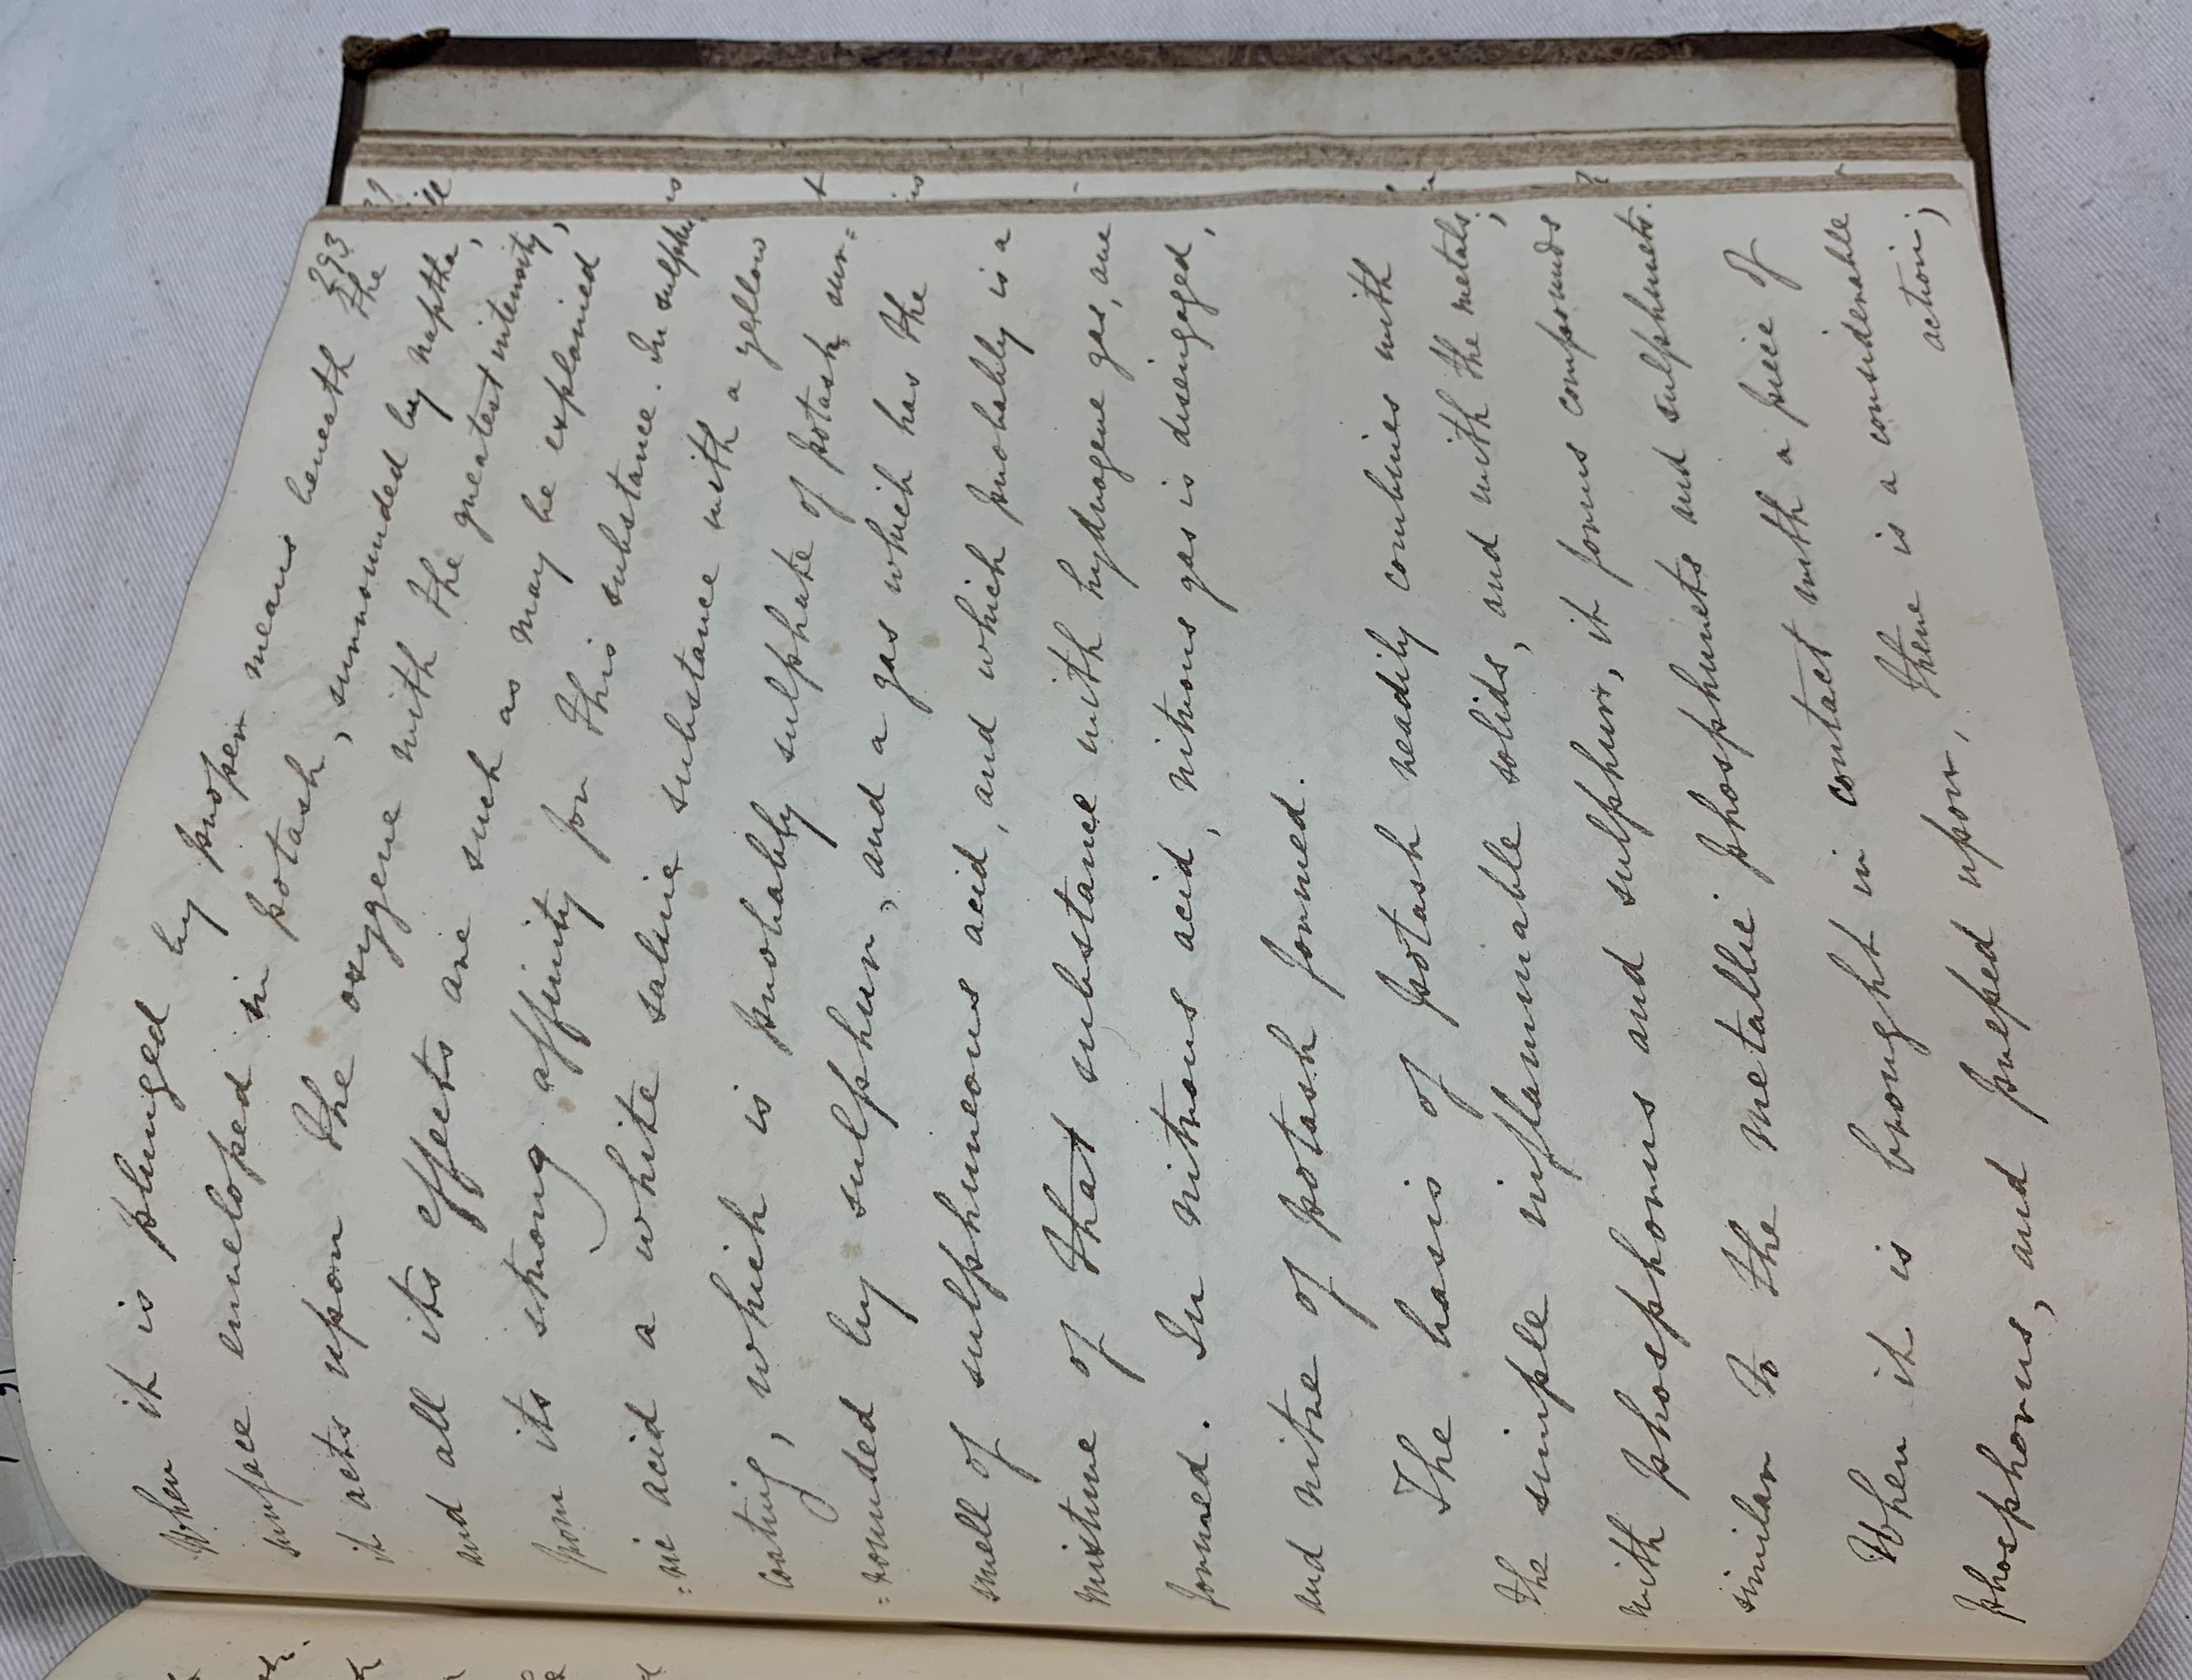 293
When it is plunged by proper means beneath the
surface enveloped in potash, surrounded by naptha,
it acts upon the oxygene with the greatest intensity,
and all its effects are such as may be explained
from its strong affinity for this substance. In sulphu
=ric acid a white saline substance with a yellow
coating, which is probably sulphate of potash sur=
=rounded by sulphur, and a gas which has the
smell of sulphureous acid, and which probably is a
mixture of that substance with hydrogene gas, are
formed. In nitrous acid, nitrous gas is disengaged,
and nitre of potash formed.
The basis of potash readily combines with
the simple inflammable solids, and with the metals;
with phosphorus and sulphur, it forms compounds
similar to the metallic phosphurets and sulphurets.
When it is brought in contact with a piece of
phosphorus, and pressed upon, there is a considerable
action;